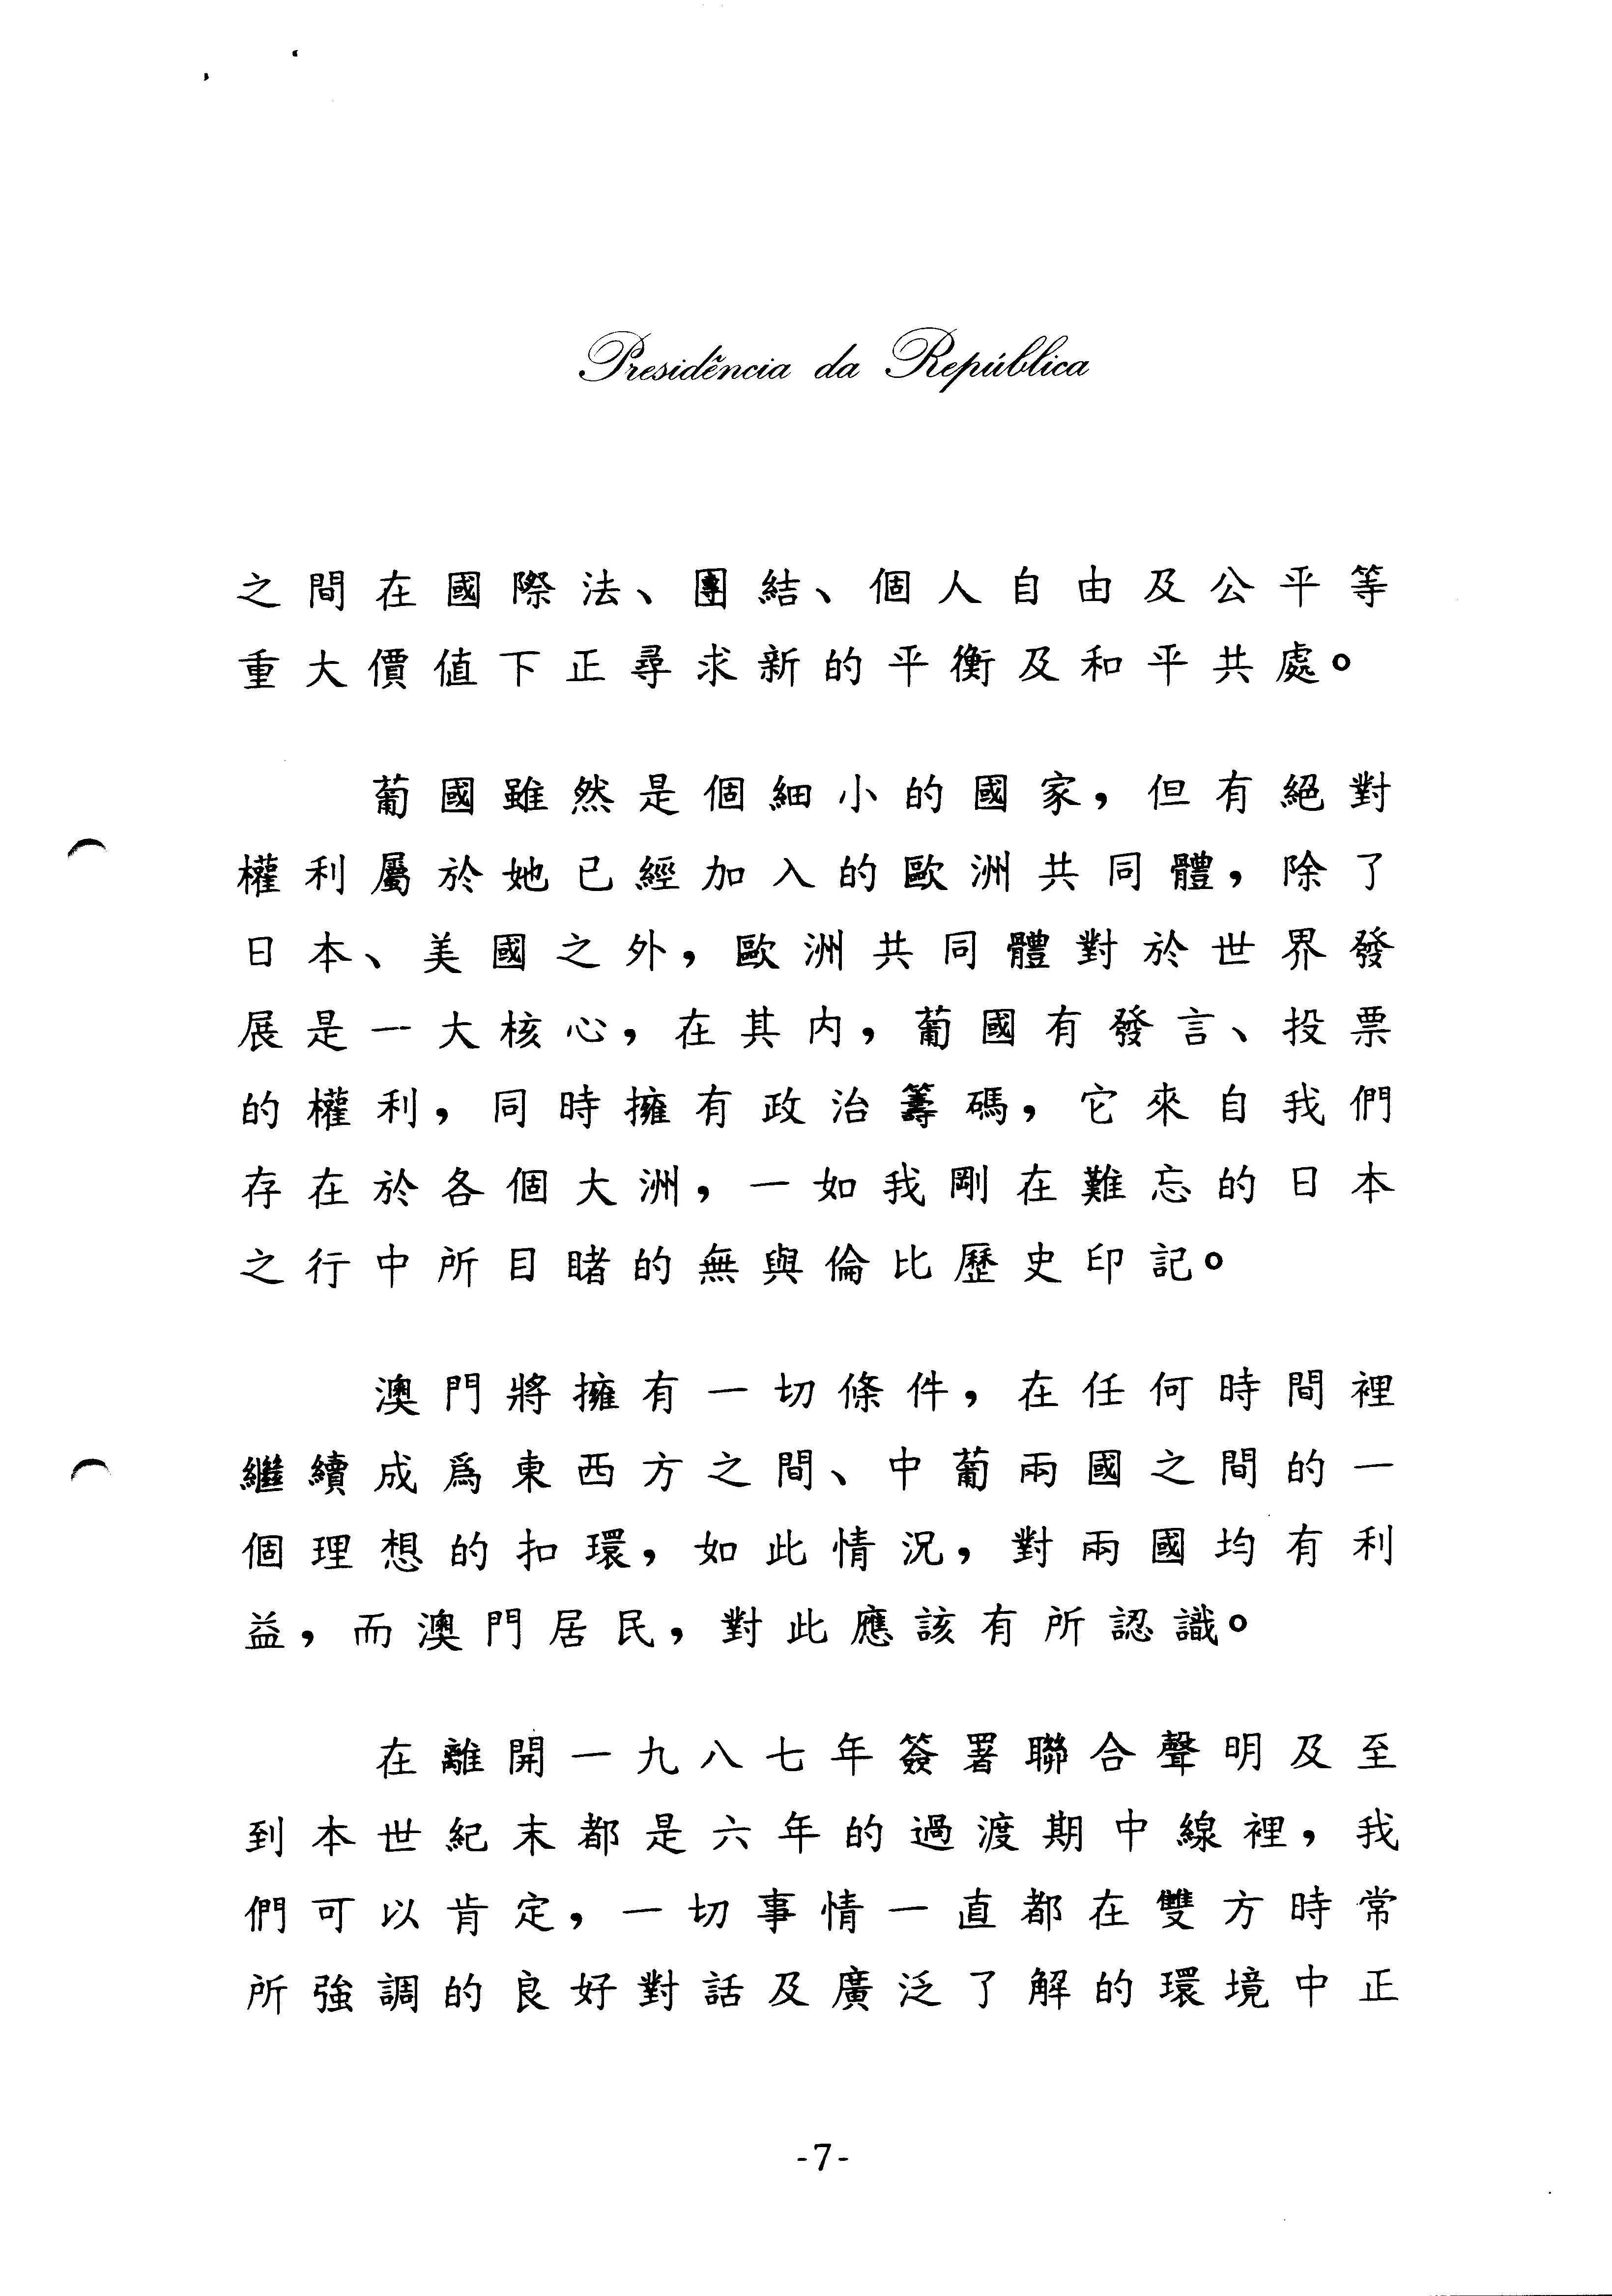 Presidência da República
之間在國際法、團結、個人自由及公平等
重大價值下正尋求新的平衡及和平共處。
葡國雖然是個細小的國家，但有絕對
權利屬於她已經加入的歐洲共同體，除了
日本、美國之外，歐洲共同體對於世界發
展是一大核心，在其內，葡國有發言、投票
的權利，同時擁有政治籌碼，它來自我們
存在於各個大洲，一如我剛在難忘的日本
之行中所目睹的無與倫比歷史印記。
澳門將擁有一切條件，在任何時間裡
繼續成爲東西方之間、中葡兩國之間的一
個理想的扣環，如此情況，對兩國均有利
益，而澳門居民，對此應該有所認識。
在離開一九八七年簽署聯合聲明及至
到本世紀末都是六年的過渡期中線裡，我
們可以肯定，一切事情一直都在雙方時常
所強調的良好對話及廣泛了解的環境中正
-7-